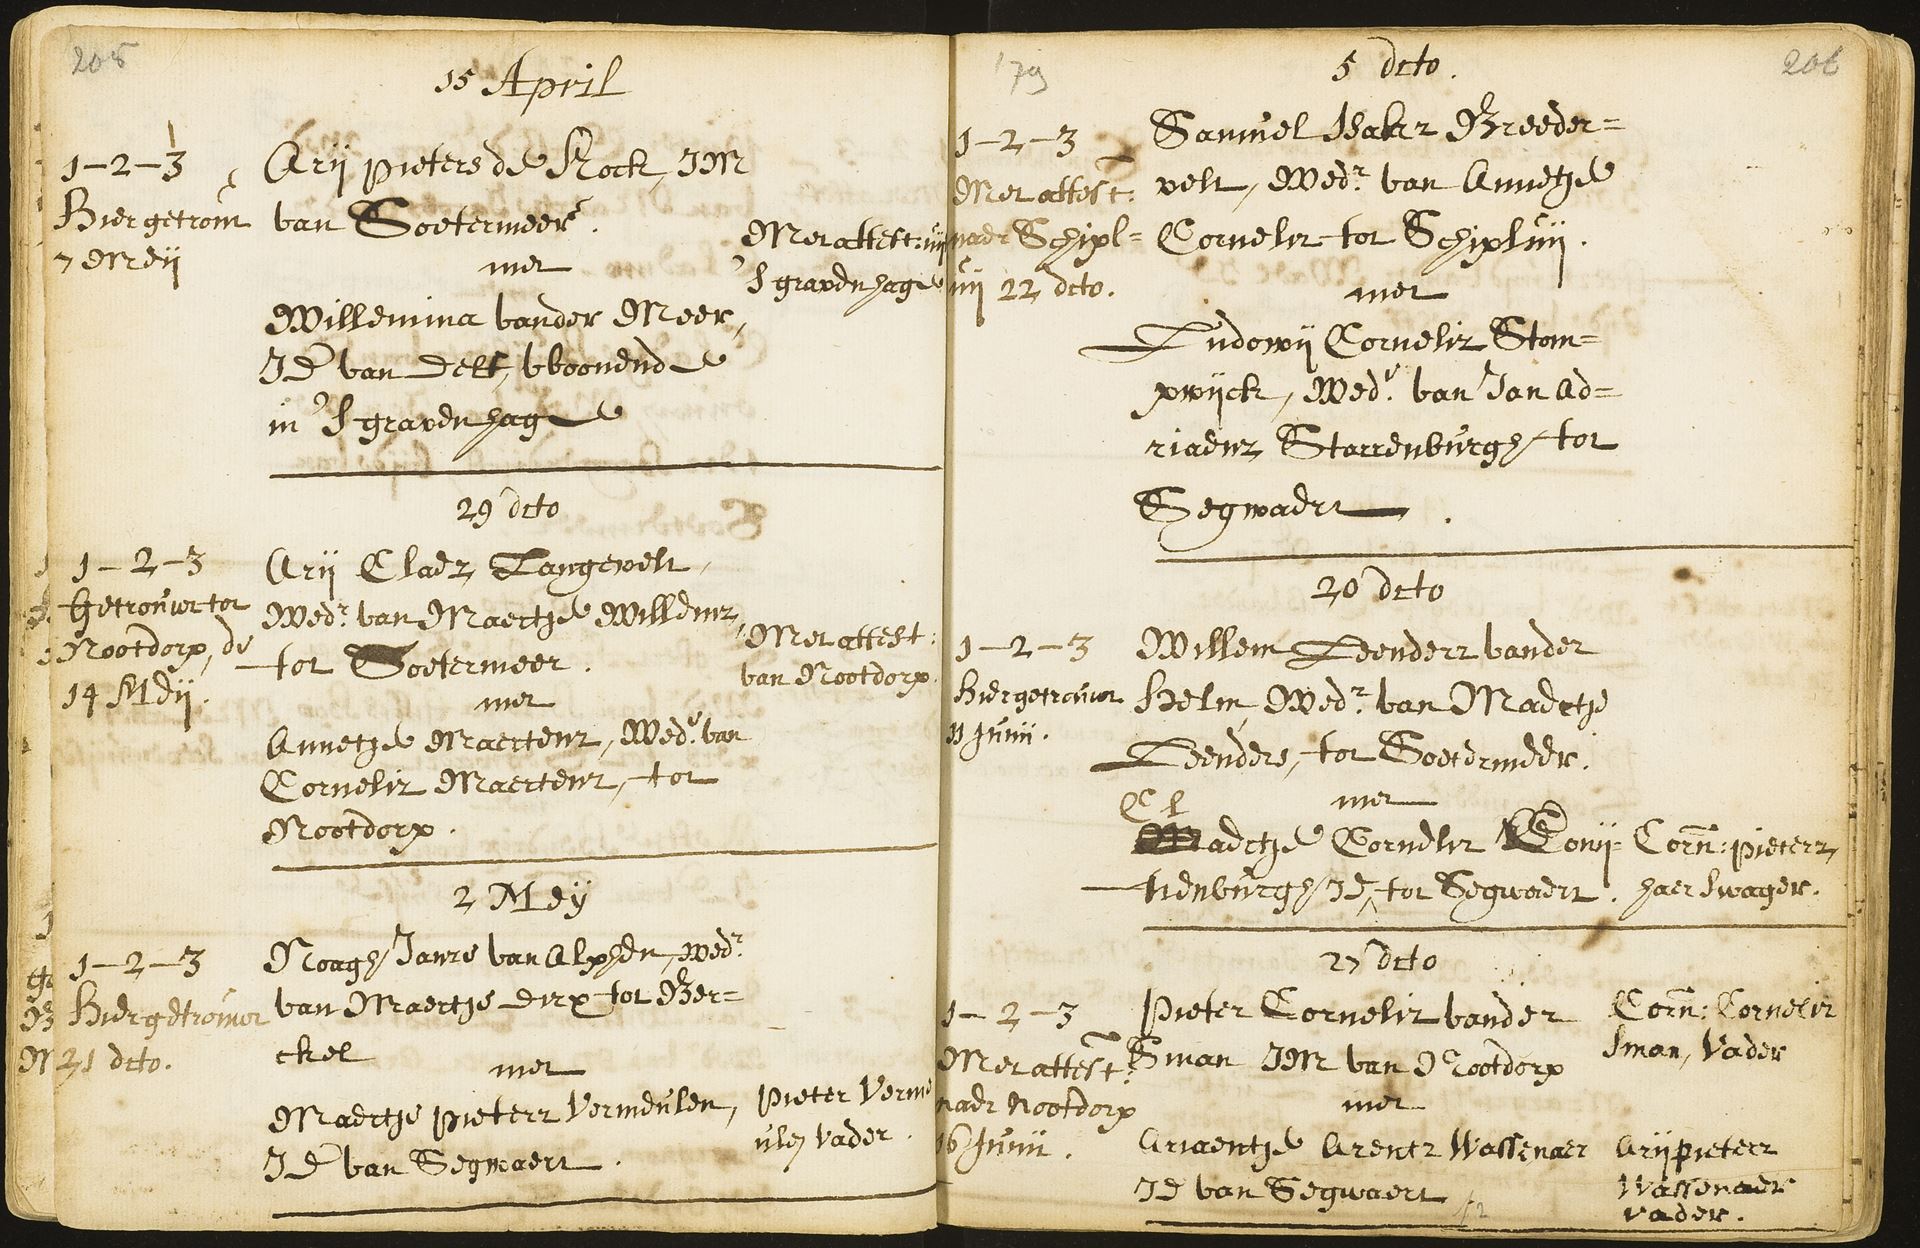 205
15 April
1-2-3
Hier getrout
7 Meij
Arij pieters de Kock, JM
van Soetermeer.
met
Willemina vander Meer,
JD van Delf, wonende
in 's gravenhage
Met attest: uij
's gravenhage
29 dcto
1-2-3
Getrouwt tot
Nootdorp, de
14 Meij.
Arij Claez Langevelt,
Wedr. van Maertje Willemz,
tot Soetermeer.
met
Annetje Maertenz, Wede. van
Cornelis Maertenz, tot
Nootdorp.
Met attest:
van Nootdorp.
2 Meij
1-2-3
Hier getrouwt
21 dcto.
Noagh Jansz van Alphen, wedr.
van Maertje Dirx tot Ber=
ckel
met
Maertje pieterz Vermeulen,
JD van Segwaert.
Pieter Verme
ulen Vader.
179
206
5 dcto.
1-2-3
Met attest:
naer Schipl=
uij 22 dcto.
Samuel Isakz Breeder=
velt, Wedr. van Annetje
Cornelis tot Schipluij.
met
Ludowij Cornelis Stom=
pwijck, Wede. van Jan Ad=
riaenz Starrenburgh, tot
Segwaert.
20 dcto
1-2-3
Hier getrouwt
11 Junij.
Willem Leenderz vander
Helm, Wedr. van Maertje
Leenders, tot Soetermeer.
met
Cl
aertje Cornelis Couwij=
henburgh, JD, tot Segwaert.
Corn: pieterz,
haer swager.
27 dcto
1-2-3
Met attest:
naer Nootdorp
16 Junij.
Pieter Cornelis vander
Sman JM van Nootdorp
met
Ariaentje Arentz Wassenaer
JD van Segwaert
Corn: Cornelis
Sman, Vader
Arij pieterz
Wassenaer
vader.